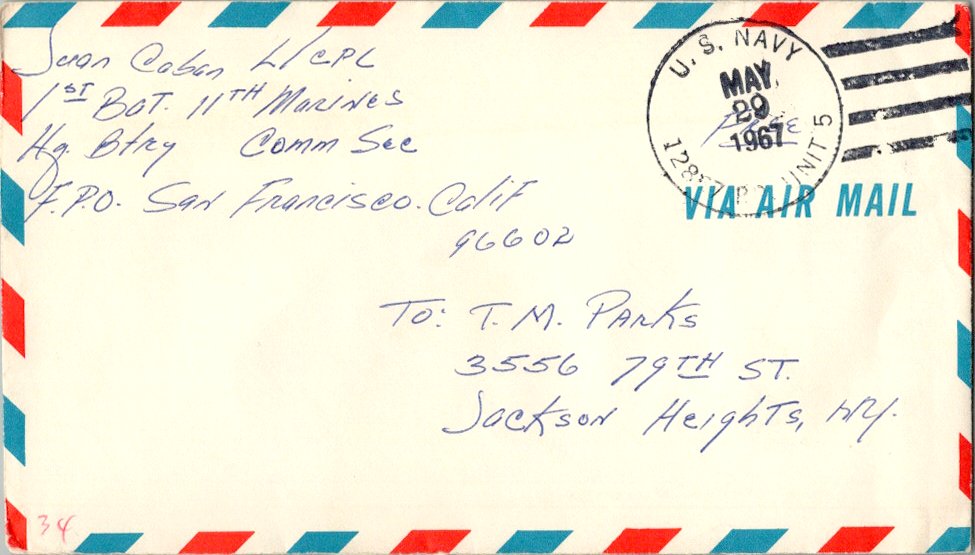 Juan Caban L/CPL
1ST BaT. 11TH Marines
Hq. Btry Comm Sec
F.P.O. San Francisco. Calif
96602
U.S. NAVY
MAY
29
1967
Free
UNIT 5
VIA AIR MAIL
To: T.M. Parks
3556 79TH ST.
Jackson Heights, N.Y.
34